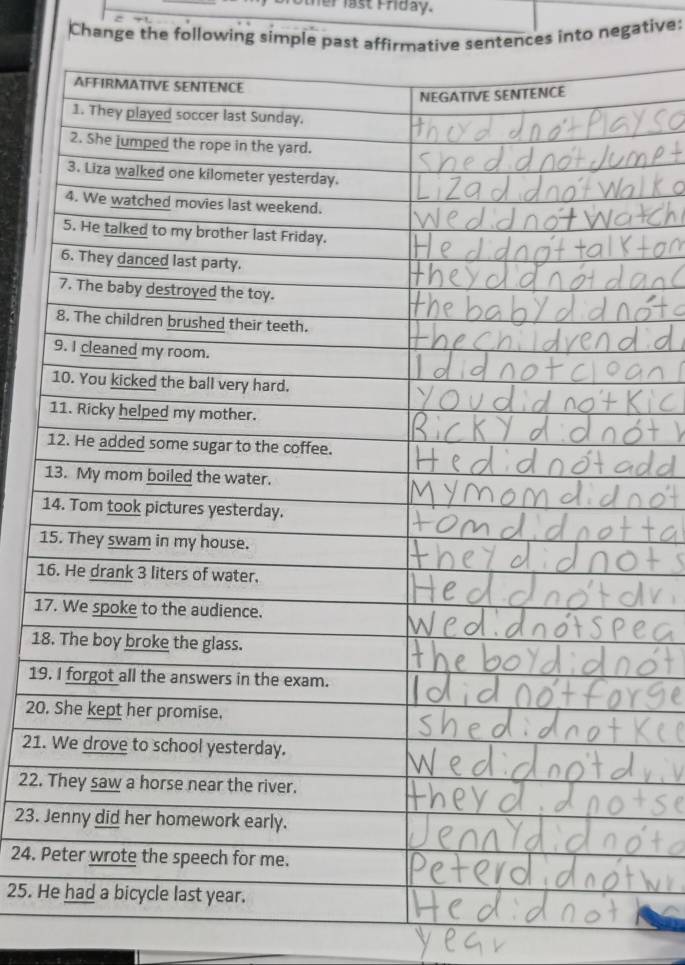 last Friday.
Change the following simple past affirmative sentences into negative:
AFFIRMATIVE SENTENCE NEGATIVE SENTENCE
1. They played soccer last Sunday. theyd dnot Play so
2. She jumped the rope in the yard. She d dnot Jump t
3. Liza walked one kilometer yesterday. Liza didnot walk o
4. We watched movies last weekend. We didnot watch
5. He talked to my brother last Friday. He didnot talk to m
6. They danced last party. they didnot danc
7. The baby destroyed the toy. the baby didnot d
8. The children brushed their teeth. the children did
9. I cleaned my room. I didnot cloan
10. You kicked the ball very hard. You didnot Kic
11. Ricky helped my mother. Ricky didnot h
12. He added some sugar to the coffee. He didnot add
13. My mom boiled the water. My mom didnot
14. Tom took pictures yesterday. tom didnot ta
15. They swam in my house. they didnot s
16. He drank 3 liters of water. He didnot dri
17. We spoke to the audience. We didnot spea
18. The boy broke the glass. the boy didnot
19. I forgot all the answers in the exam. I didnot forge
20. She kept her promise. she didnot Kee
21. We drove to school yesterday. We didnot driv
22. They saw a horse near the river. they didnot se
23. Jenny did her homework early. Jenny didnot d
24. Peter wrote the speech for me. Peter didnot wri
25. He had a bicycle last year. He didnot
year